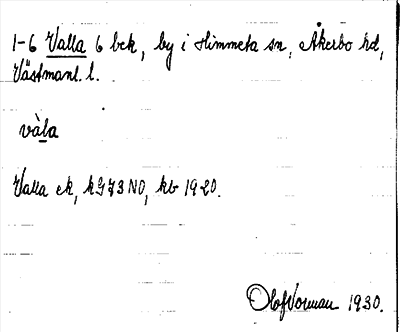 1-6 Valla 6 bek, by i Himmeta sn, Åkerbo hd,
Västmanl. l.
vàla
Valla ek, k973NO, kb 1920.
Olof Norman 1930.